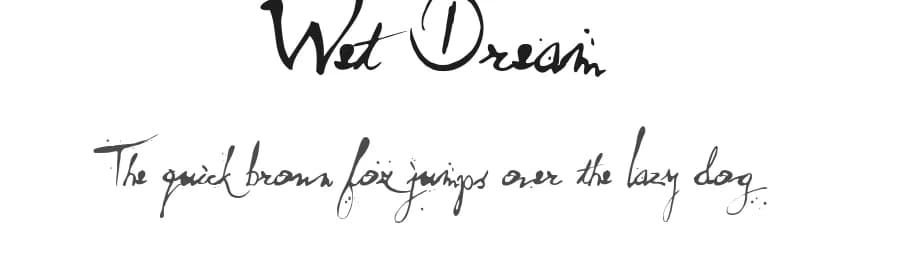 Wet Dream
The quick brown fox jumps over the lazy dog